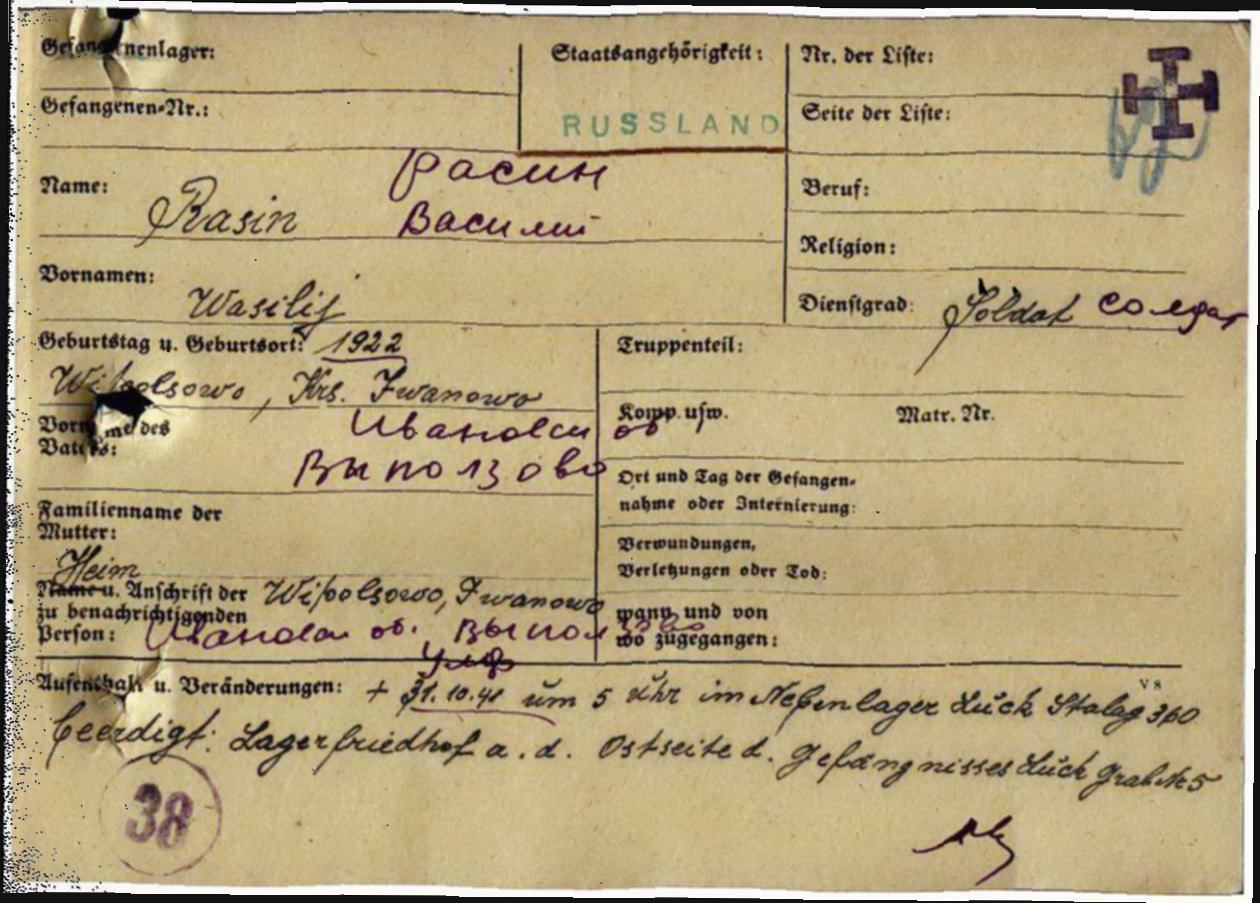 Gefangenenlager:
Staatsangehörigkeit:
Nr. der Liste:
Gefangenen-Nr.:
RUSSLAND
Seite der Liste:
Name: Rasin
Расин
Василий
Beruf:
Religion:
Vornamen: Wasilij
Dienstgrad: Soldat солдат
Geburtstag u. Geburtsort: 1922
Wipolsowo, Krs. Iwanowo
Truppenteil:
Komp. usw. Matr. Nr.
Vorname des
Vaters:
Ивановск об
Выползово
Ort und Tag der Gefangen-
nahme oder Internierung:
Familienname der
Mutter:
Heim
Verwundungen,
Verletzungen oder Tod:
Name u. Anschrift der Wipolsowo, Iwanowo
zu benachrichtigenden
Person: об. Выползово
wann und von
wo zugegangen:
V 8
Aufenthalt u. Veränderungen: + 31.10.41 um 5 Uhr im Nebenlager Luck Stalag 360
beerdigt: Lagerfriedhof a. d. Ostseite d. Gefängnisses Luck Grab № 5
38